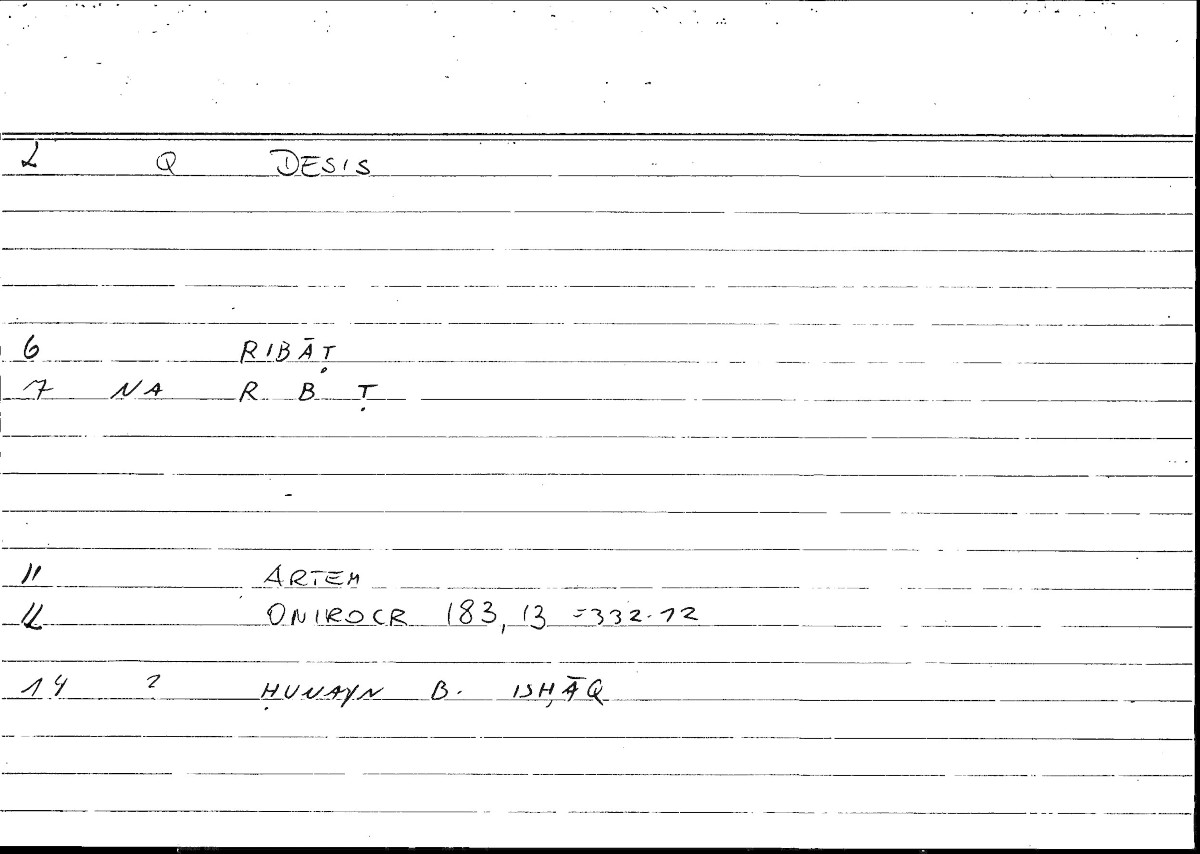 2 Q DESIS
6 RIBĀṬ
7 NA R B Ṭ
11 ARTEM
12 ONIROCR 183, 13 =332.12
14 2 ḤUNAYN B. ISḤĀQ